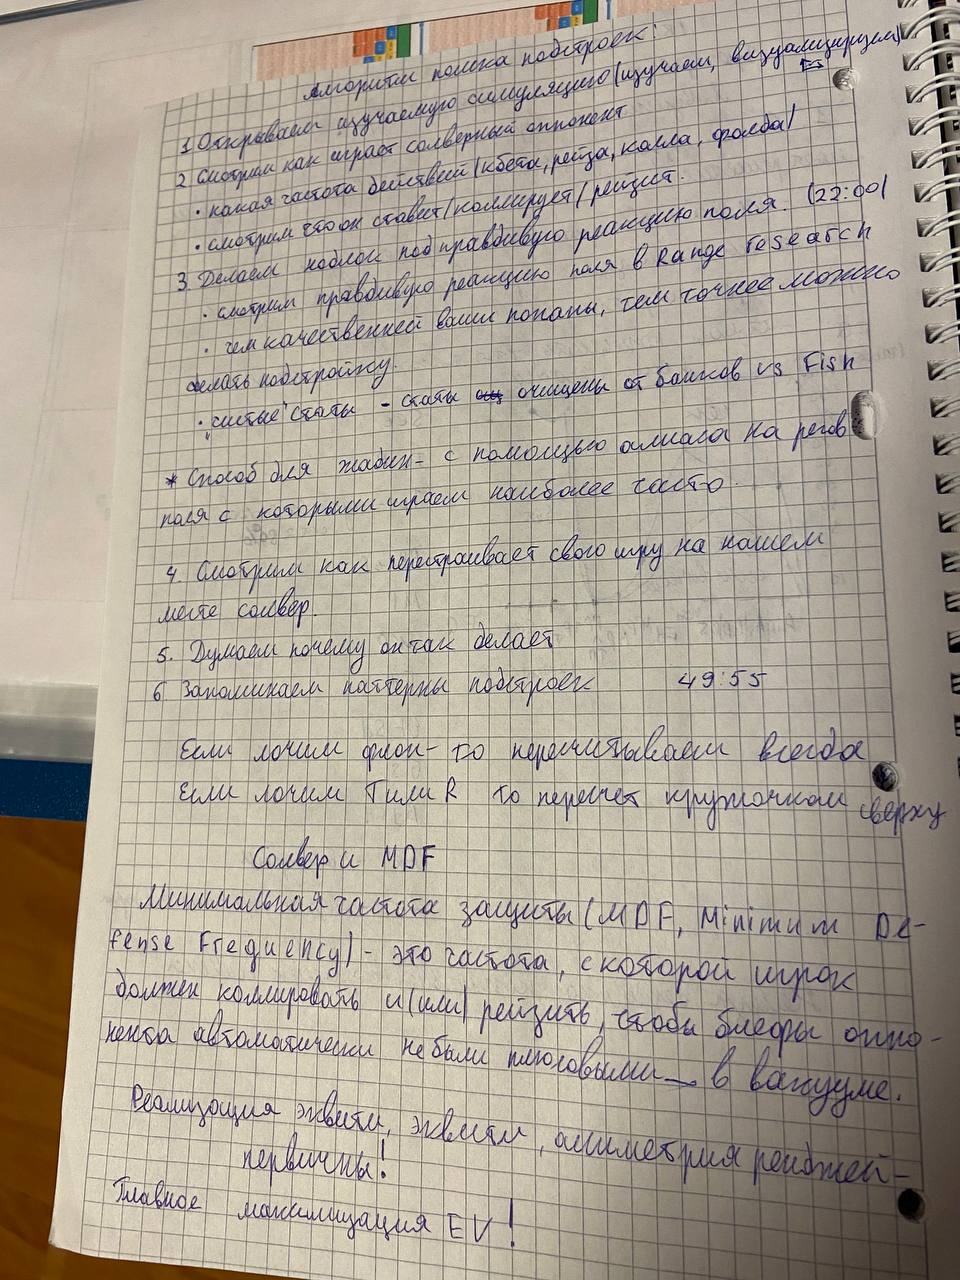 Алгоритм поиска подстроек:
1 Открываем изучаемую симуляцию (изучаем, визуализируем)
2 Смотрим как играет солверный оппонент
• какая частота действий (кбета, рейза, колла, фолда)
• смотрим что он ставит/коллирует/рейзит.
3 Делаем нодлок под правдивую реакцию поля. (22:00)
• смотрим правдивую реакцию поля в Range research
• чем качественней ваши попапы, тем точнее можно
делать подстройку.
• "чистые" статы - статы очищены от банков vs Fish
* Способ для жадин - с помощью алиаса на регов
поля с которыми играем наиболее часто.
4. Смотрим как перестраивает свою игру на нашем
месте солвер.
5. Думаем почему он так делает
6 Запоминаем паттерны подстроек 49:55
Если лочим флоп - то пересчитываем всегда
Если лочим T или R то пересчет кружочком сверху
Солвер и MDF
Минимальная частота защиты (MDF, Minimum De-
fense Frequency) - это частота, с которой игрок
должен коллировать и (или) рейзить, чтобы блефы оппо-
нента автоматически не были плюсовыми в вакууме.
Реализация эквити, эквити, асиметрия рейнджей -
первичны!
Главное максимизация EV!